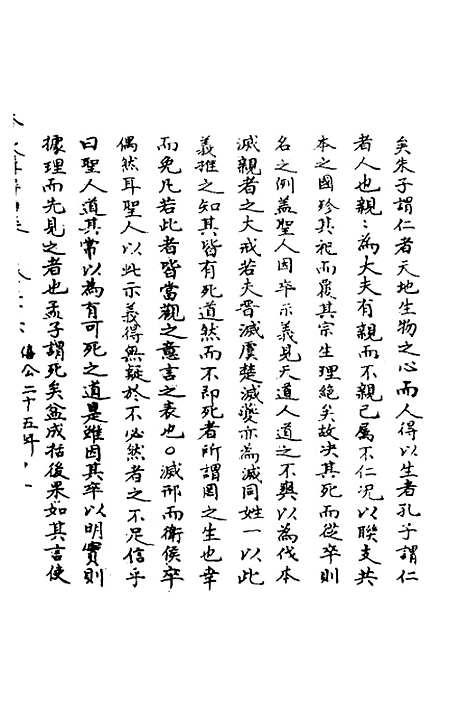 矣朱子謂仁者天地生物之心而人得以生者孔子謂仁
者人也親〻為大夫有親而不親已屬不仁况以聯支共
本之國殄其祀而覆其宗生理絕矣故决其死而從卒則
名之例盖聖人因卒示義見天道人道之不與以為伐本
滅親者之大戒若夫晋滅虞楚滅夔亦為滅同姓一以此
義推之知其皆有死道然而不即死者所謂罔之生也幸
而免凡若此者皆當觀之意言之表也○滅邢而衛侯卒
偶然耳聖人以此示義得無疑於不必然者之不足信乎
曰聖人道其常以為有可死之道是雖因其卒以明實則
據理而先見之者也孟子謂死矣盆成括後果如其言使
僖公二十五年